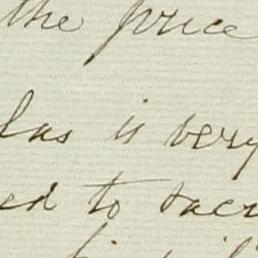 the price
las is very
ed to sacr